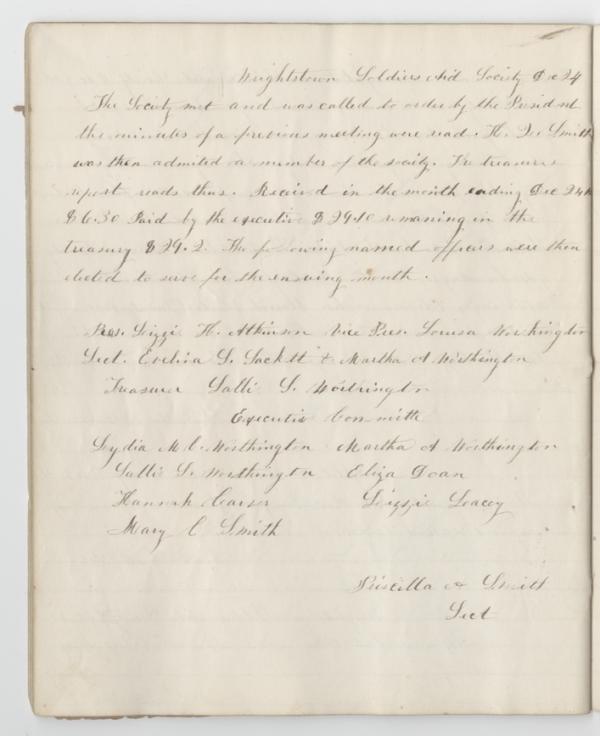 Wrightstown Soldiers Aid Society Dec 24
The Society met and was called to order by the President
the minutes of a previous meeting were read. H. Smith
was then admited a member of the society. The treasurers
report reads thus. Received in the month ending Dec 24th
$6.30 Paid by the executive $29.10 remaning in the
treasury $29.2. The following named officers were then
elected to serve for the ensuing month.
Pres. Lizzie H. Atkinson Vice Pres. Louisa Worthington
Sect. Evelina S. Sackett & Martha A Worthington
Treasurer Sallie S. Worthington
Executive Committe
Lydia M. C. Worthington Martha A Worthington
Sallie S. Worthington Eliza Doan
Hannah Carver Lizzie Lacey
Mary C Smith
Priscilla A Smith
Sect